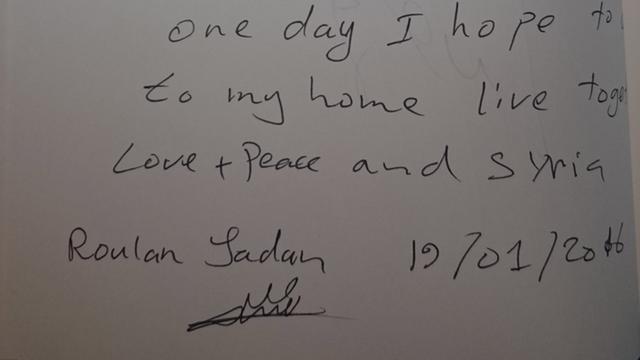 one day I hope to
to my home live toge
Love + Peace and Syria
Roulan 19/01/2016